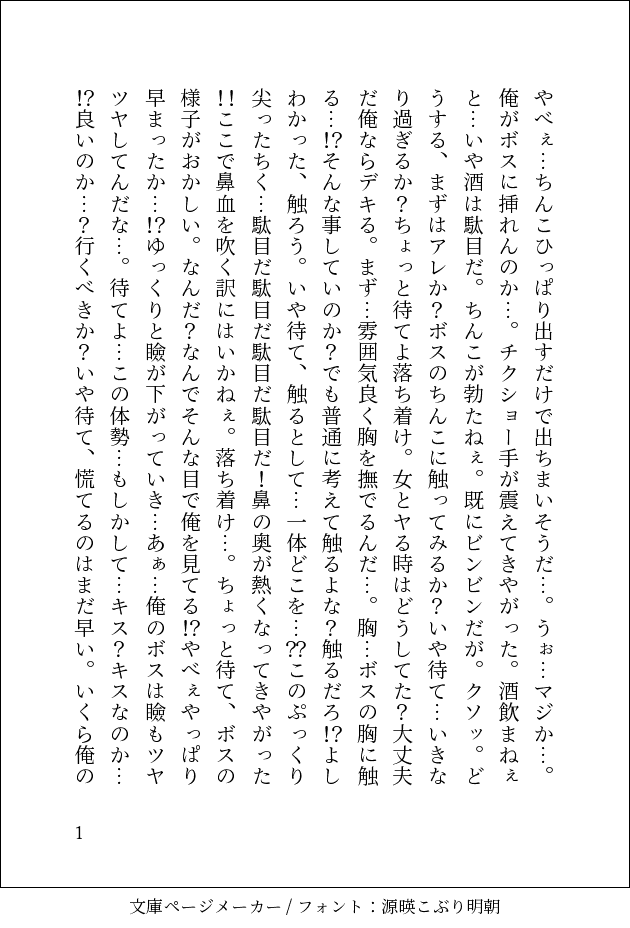 やべぇ…ちんこひっぱり出すだけで出ちまいそうだ…。うぉ…マジか…。
俺がボスに挿れんのか…。チクショー手が震えてきやがった。酒飲まねぇ
と…いや酒は駄目だ。ちんこが勃たねぇ。既にビンビンだが。クソッ。ど
うする、まずはアレか？ボスのちんこに触ってみるか？いや待て…いきな
り過ぎるか？ちょっと待てよ落ち着け。女とヤる時はどうしてた？大丈夫
だ俺ならデキる。まず…雰囲気良く胸を撫でるんだ…。胸…ボスの胸に触
る…!?そんな事していのか？でも普通に考えて触るよな？触るだろ!?よし
わかった、触ろう。いや待て、触るとして…一体どこを…??このぷっくり
尖ったちく…駄目だ駄目だ駄目だ駄目だ！鼻の奥が熱くなってきやがった
!!ここで鼻血を吹く訳にはいかねぇ。落ち着け…。ちょっと待て、ボスの
様子がおかしい。なんだ？なんでそんな目で俺を見てる!?やべぇやっぱり
早まったか…!?ゆっくりと瞼が下がっていき…あぁ…俺のボスは瞼もツヤ
ツヤしてんだな…。待てよ…この体勢…もしかして…キス？キスなのか…
!?良いのか…？行くべきか？いや待て、慌てるのはまだ早い。いくら俺の
1
文庫ページメーカー / フォント：源暎こぶり明朝